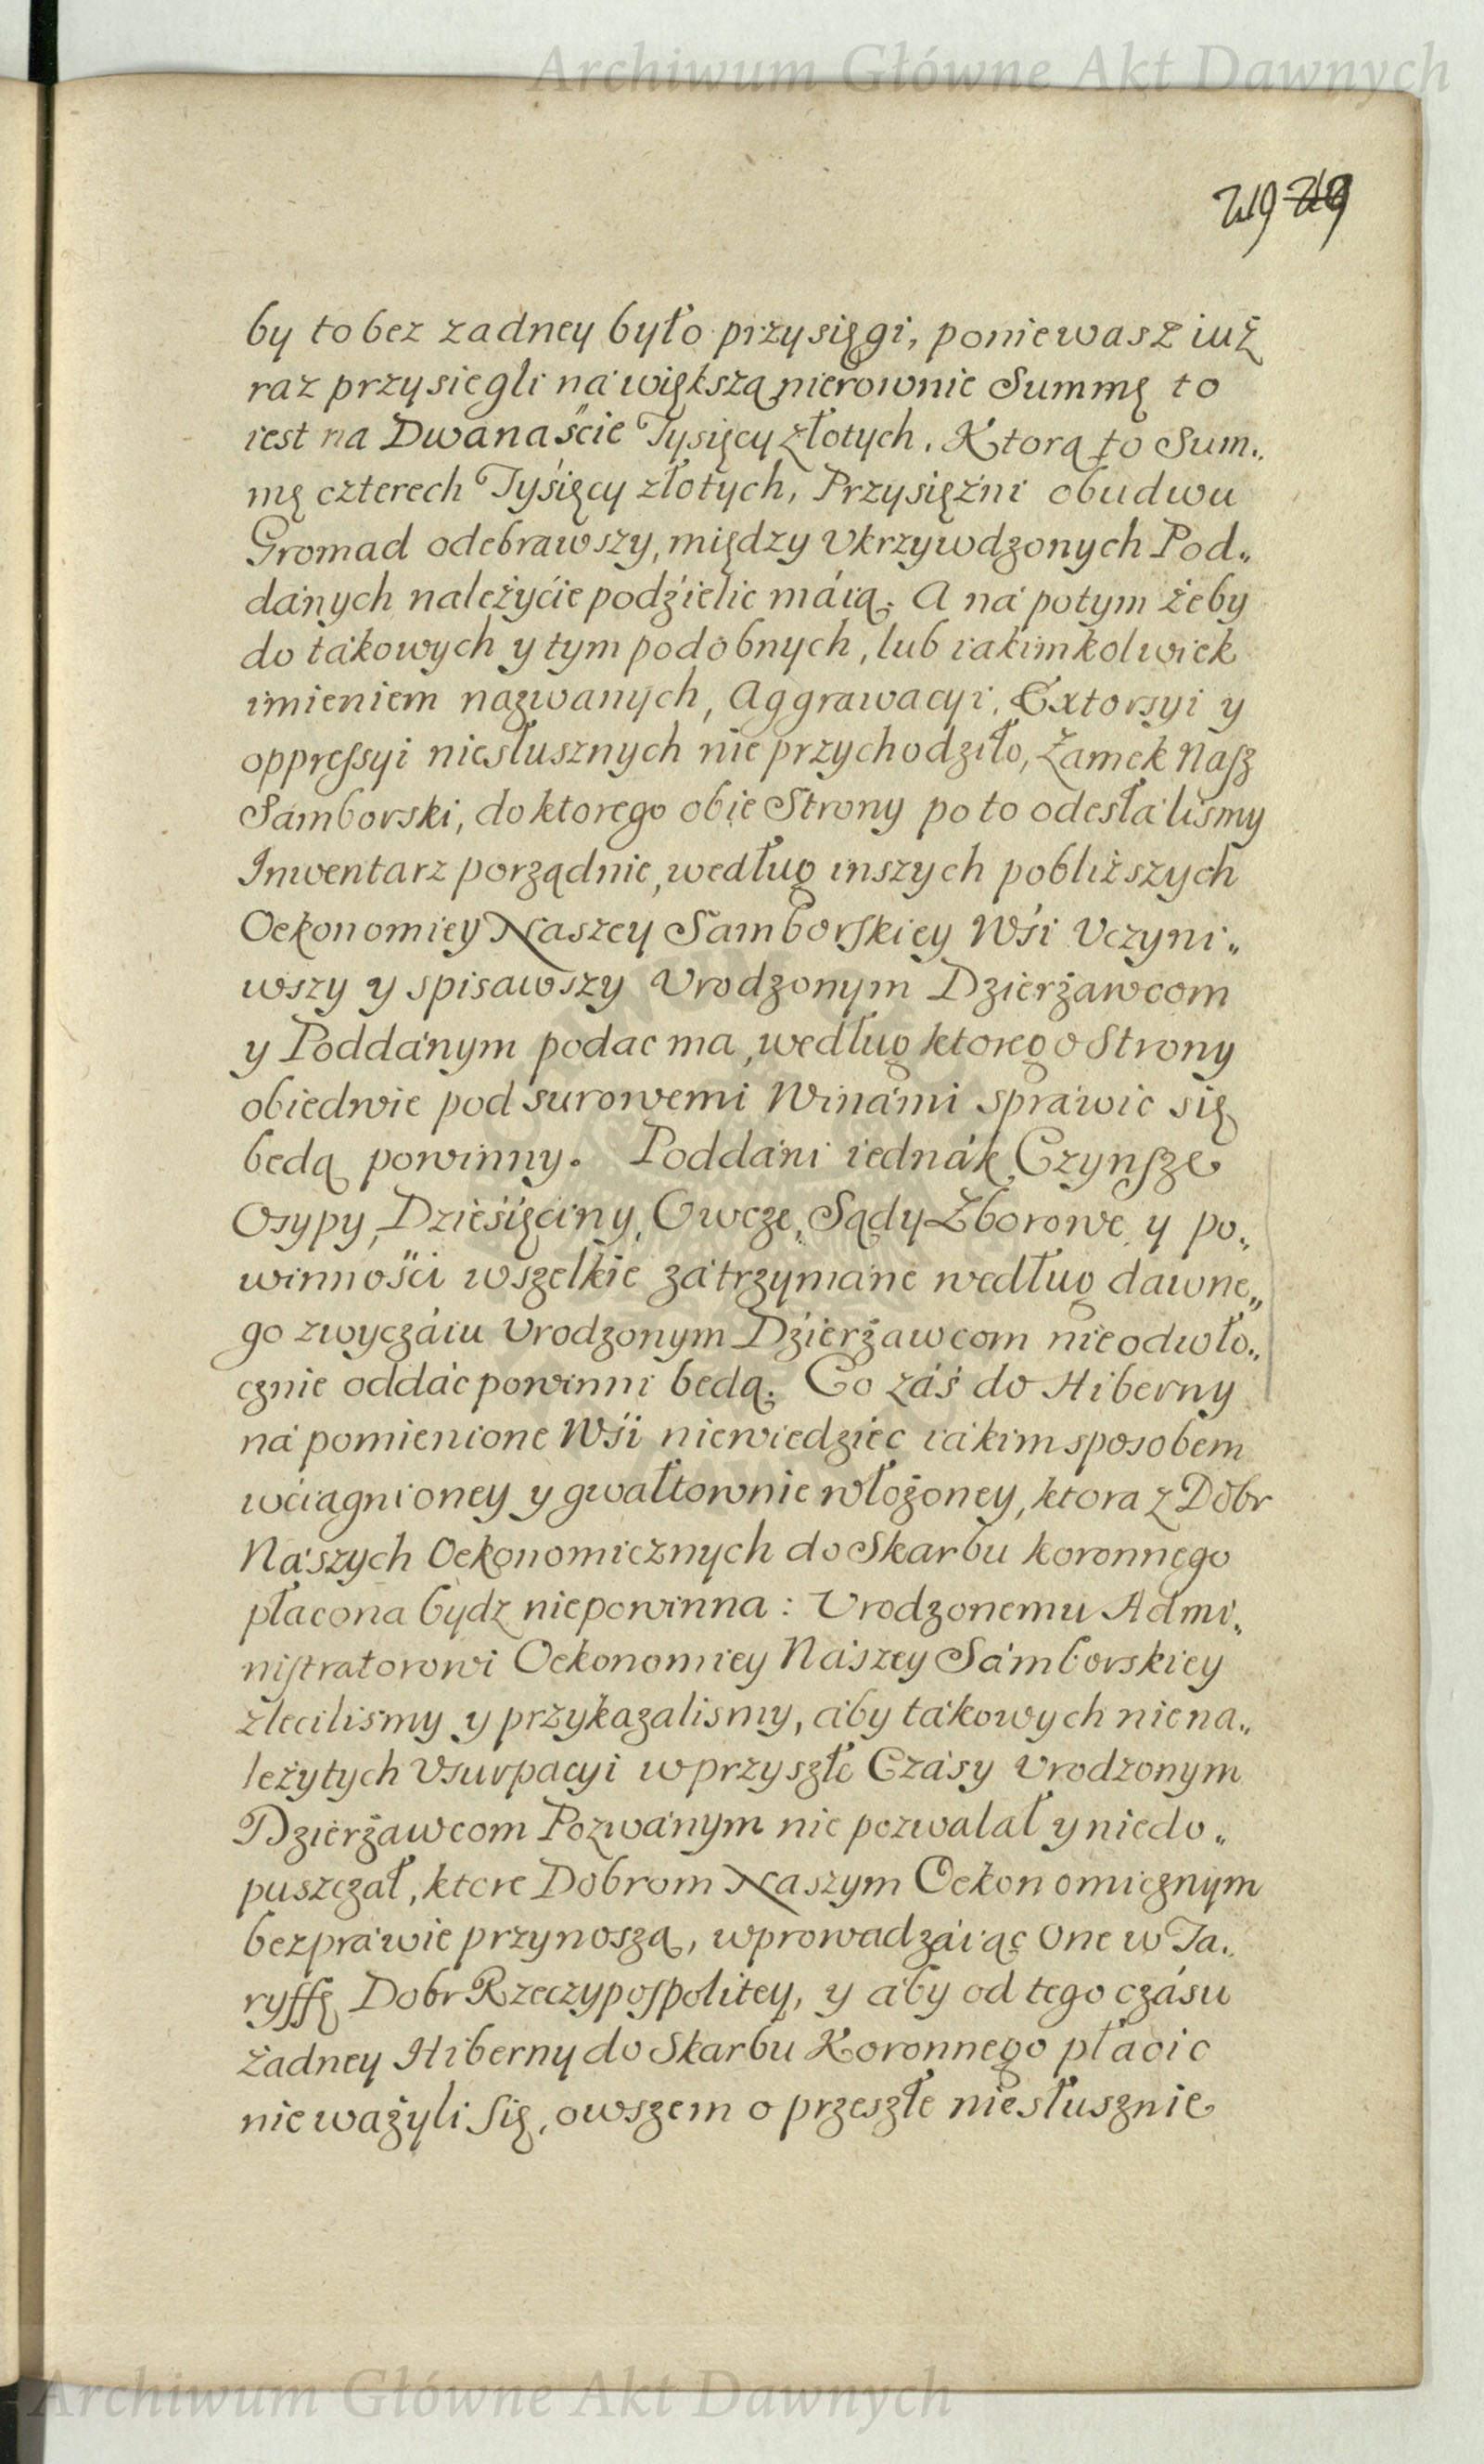 Archiwum Główne Akt Dawnych
219 219
by to bez zadney było przysięgi, poniewasz iuż
raz przysiegli ná większą nierownie Summę to
iest na Dwanaście Tysięcy złotych. Ktorą to Sum„
mę czterech Tyśięcy złotych, Przysięźni obudwu
Gromad odebrawszy, między Vkrzywdzonych Pod„
dánych należyćie podźielic máią. A ná potym żeby
do tákowych y tym podobnych, lub iakimkolwiek
imieniem nazwanych, Aggrawacyi, Extorsyi y
oppressyi niesłusznych nie przychodziło, Zamek Nasz
Samborski, do ktorego obie Strony po to odesłálismy
Inwentarz porządnie, według inszych pobliższych
Oekonomiey Naszey Samborskiey Wśi Vczyni„
wszy y spisawszy Vrodzonym Dzierżawcom
y Poddánym podac ma, według ktorego Strony
obiedwie pod surowemi Winámi spráwic się
będą powinny. Poddáni iednák Czynsze
Osypy, Dzieśięćiny, Owcze, Sądy Zborowe y po„
winnośći wszelkie zátrzymane według dawne„
go zwyczáiu Vrodzonym Dźierżawcom nieodwło„
cznie oddác powinni będą. Co záś do Hiberny
ná pomienione Wśi niewiedziec iákim sposobem
wćiągnioney y gwałtownie włożoney, ktora z Dobr
Nászych Oekonomicznych do Skarbu koronnego
płacona bydz niepowinna: Vrodzonemu Admi„
nistratorowi Oekonomiey Nászey Sámborskiey
zlecilismy y przykazalismy, áby tákowych niena„
leżytych Vsurpacyi w przyszłe Czásy Vrodzonym
Dzierżawcom Pozwánym nie pozwalał y niedo„
puszczał, ktore Dobrom Naszym Oekonomicznym
bezpráwie przynoszą, wprowadzáiąc one w Ta„
ryffę Dobr Rzeczypospolitey, y áby od tego czásu
żadney Hiberny do Skarbu Koronnego płacic
nie ważyli się, owszem o przeszłe niesłusznie
Archiwum Główne Akt Dawnych